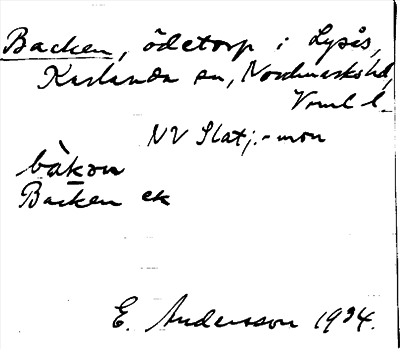 Backen, ödetorp i Lysås,
Karlanda sn, Nordmarks hd,
Vrml l.
NV Slätj:-mon
bàkon
Backen ek
E. Andersson 1934.